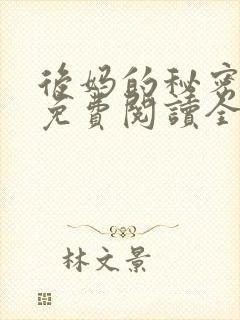 後妈的秘密
免費閱讀全
林文景